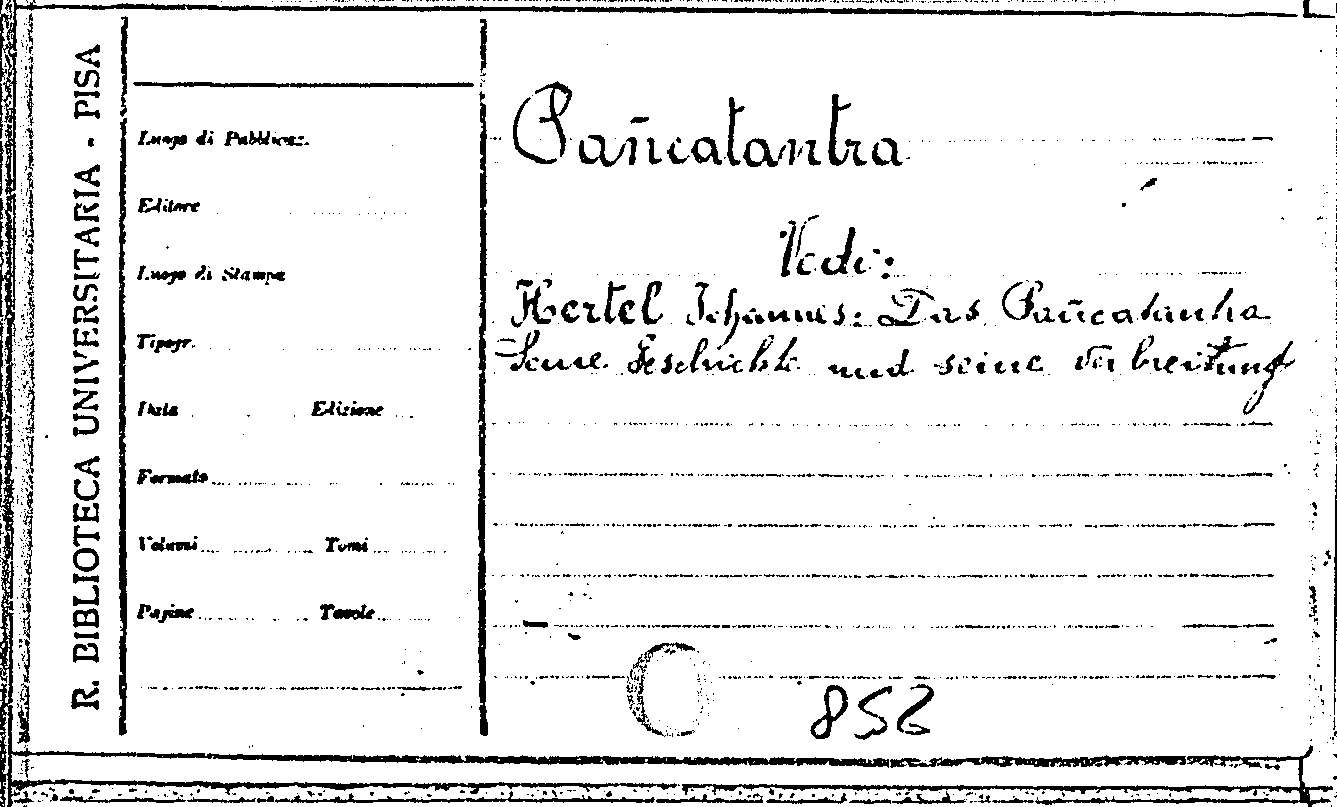 R. BIBLIOTECA UNIVERSITARIA - PISA
Luogo di Pubblicaz.
Editore
Luogo di Stampa
Tipogr.
Data Edizione
Formato
Volumi Tomi
Pagine Tavole
Pañcatantra
Vedi:
Hertel Johannes: Das Pañcatantra
Seine Geschichte und seine Verbreitung
852